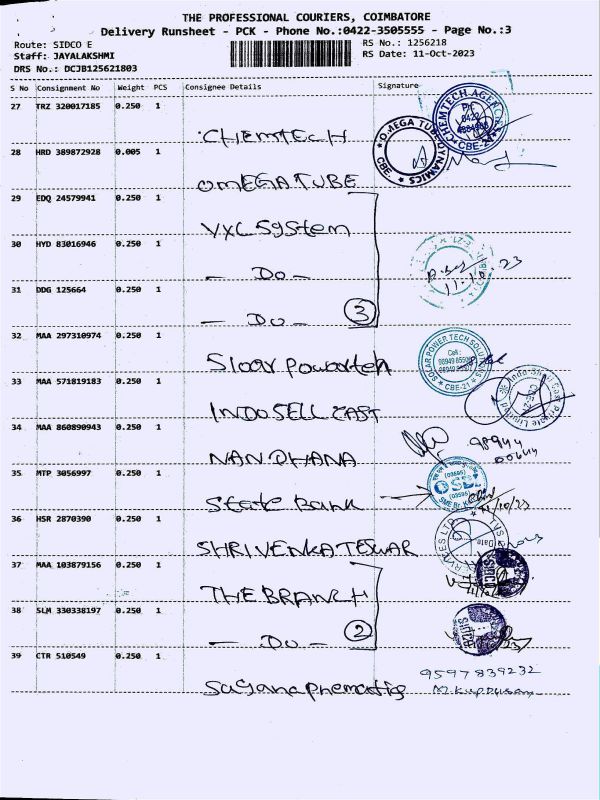 THE PROFESSIONAL COURIERS, COIMBATORE
Delivery Runsheet - PCK - Phone No.:0422-3505555 - Page No.:3
Route: SIDCO E
RS No.: 1256218
Staff: JAYALAKSHMI
RS Date: 11-Oct-2023
DRS No.: DCJB125621803
S No Consignment No Weight PCS Consignee Details Signature
27 TRZ 320017185 0.250 1
CHEMTECH
CHEMTECH AGENCIES CBE-21
28 HRD 389872928 0.005 1
OMEGA TUBE
OMEGA TUBE DYNAMICS CBE
29 EDQ 24579941 0.250 1
VXL System
30 HYD 83016946 0.250 1
- Do -
11.10.23
31 DDG 125664 0.250 1
- Do - 3
32 MAA 297310974 0.250 1
Sloar Powarteh
SOLAR POWER TECH SOLUTIONS Cell: CBE-21
33 MAA 571819183 0.250 1
INDO SELL CAST
Private Limited
34 MAA 860890943 0.250 1
NANDHANA
98944
00644
35 MTP 3056997 0.250 1
State Bank
SBI
11/10/23
36 HSR 2870390 0.250 1
SHRIVENKATESWAR
TVS Date
37 MAA 103879156 0.250 1
THE BRANCH
38 SLM 330338197 0.250 1
- Do - 2
39 CTR 510549 0.250 1
Sagana Pnematig
9597839232
M. Kuppusam